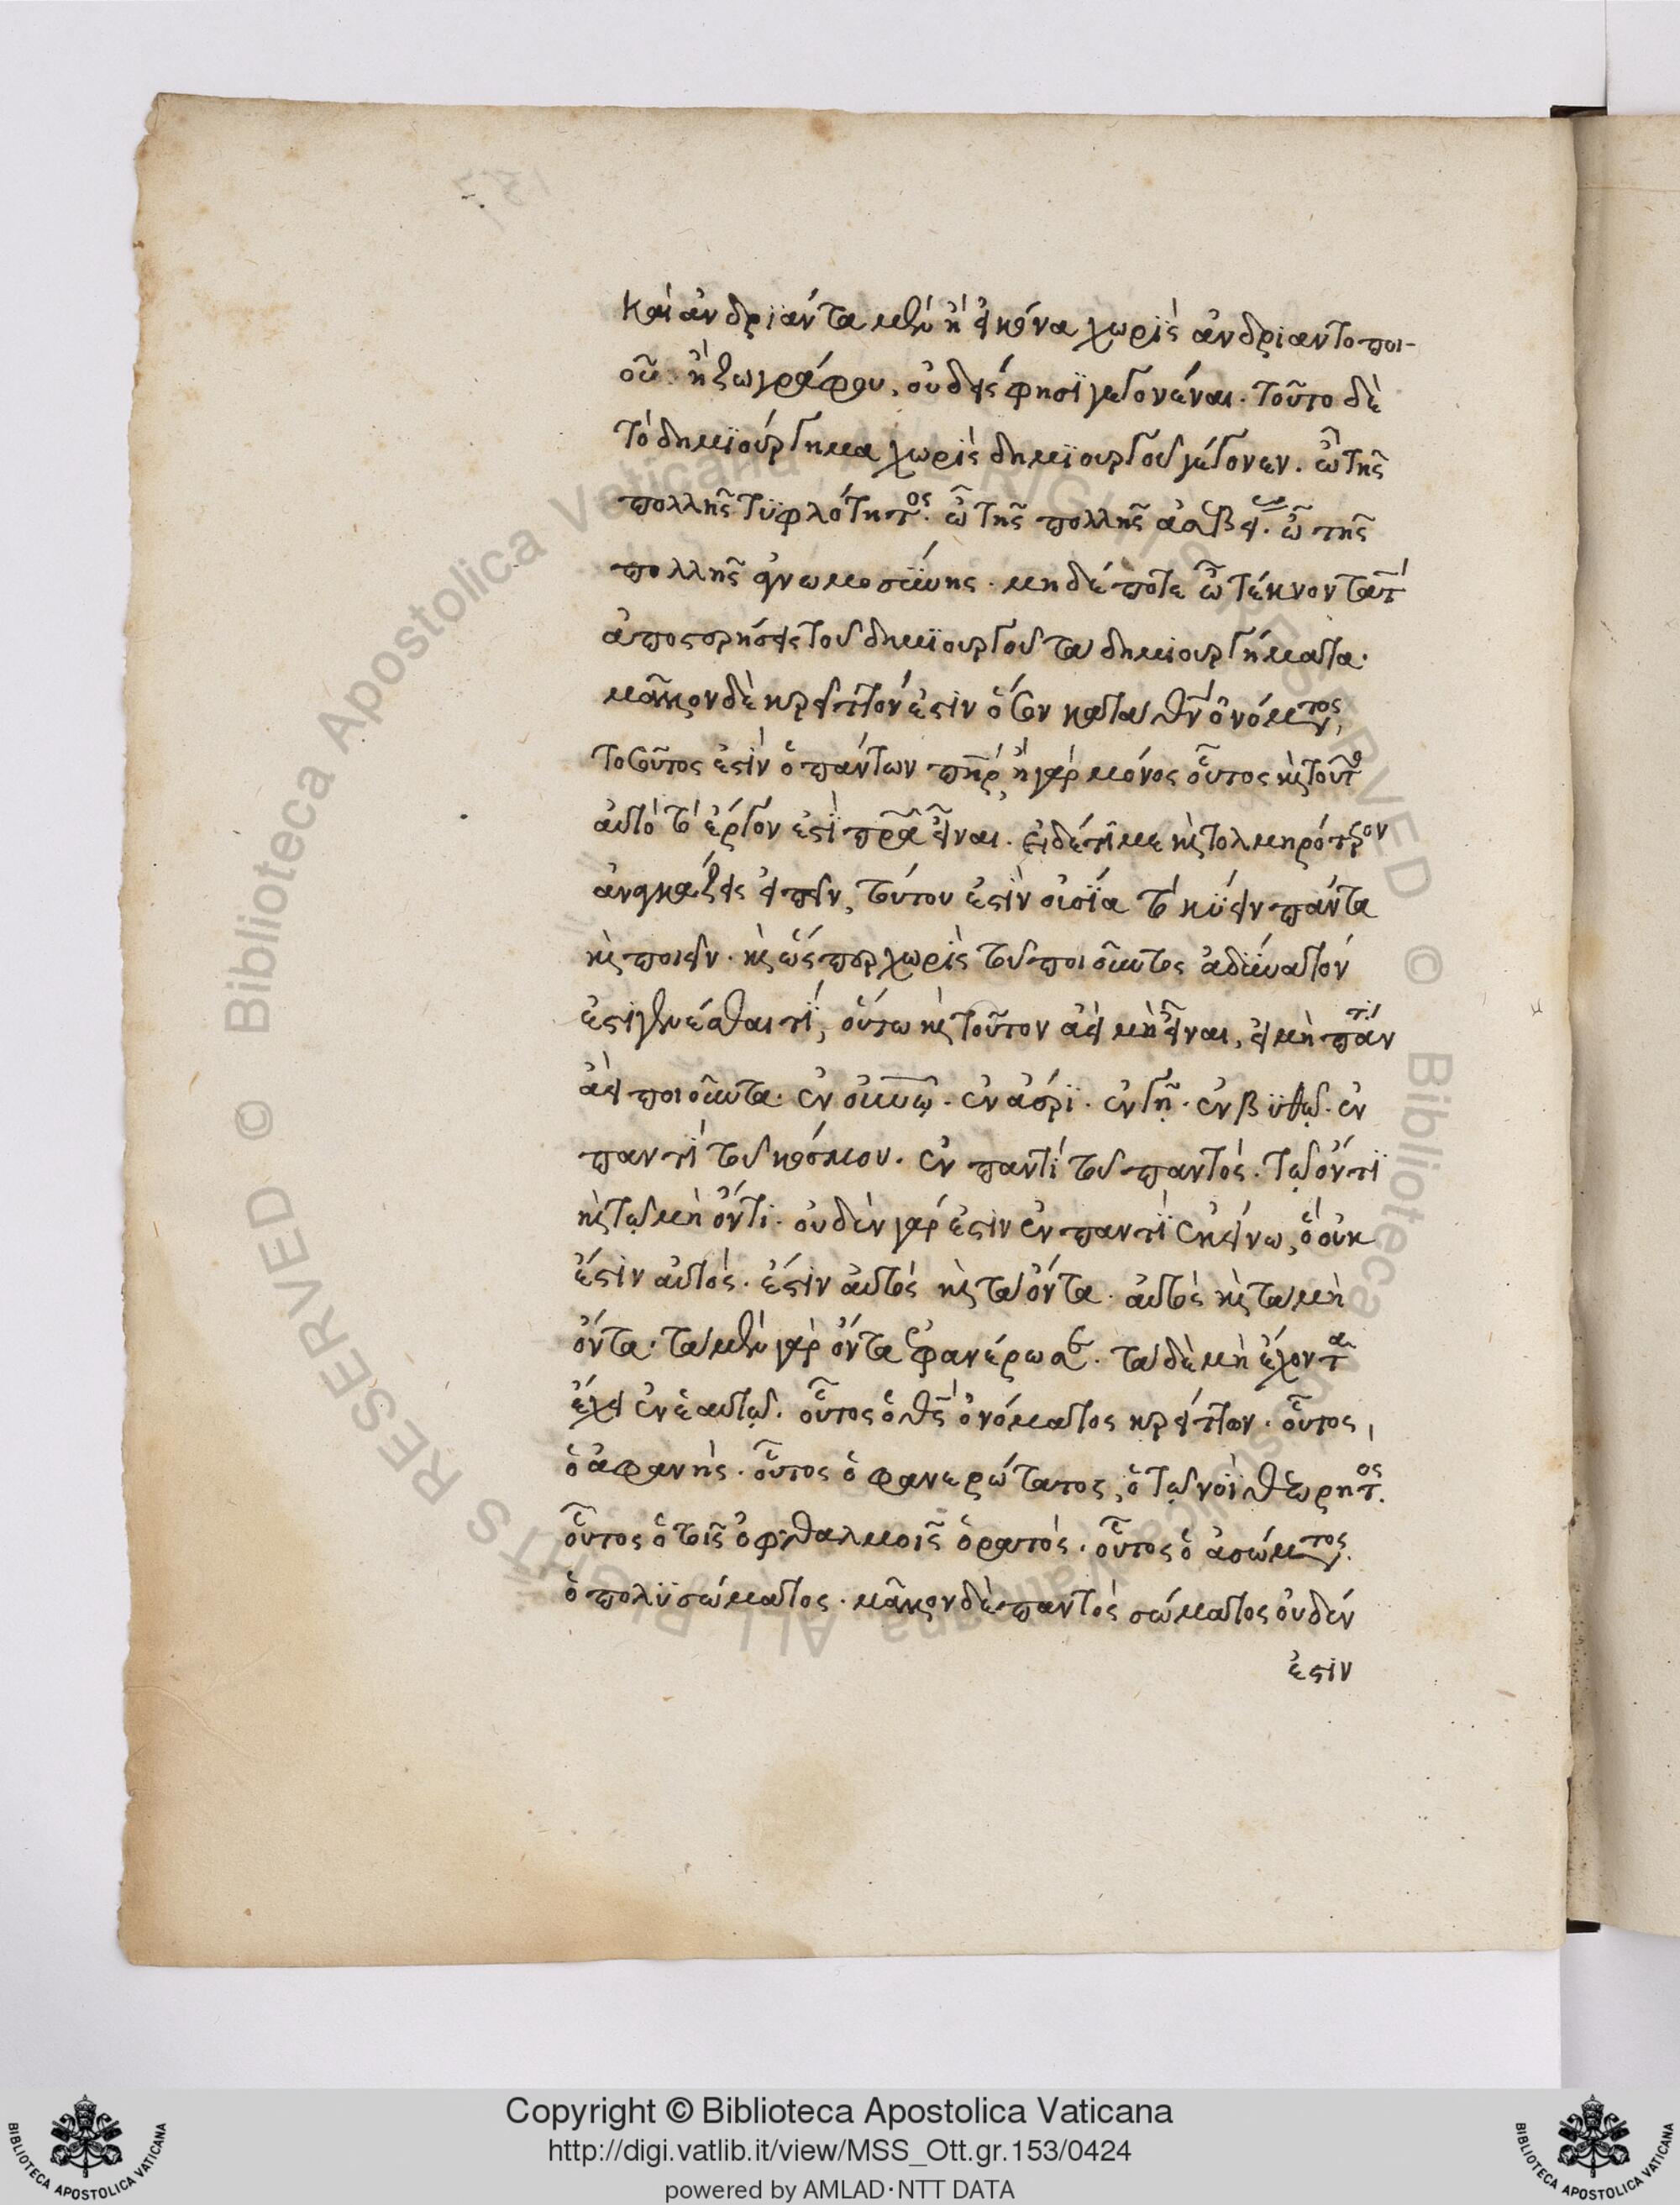 καὶ ἀνδριάντα μὲν ἢ εἰκόνα χωρὶς ἀνδριαντοποι-
οῦ ἢ ζωγράφου, οὐδείς φησϊ γεγονέναι. τοῦτο δὲ
τὸ δημϊούργημα χωρὶς δημϊουργοῦ γέγονεν. ὢ τῆς
πολλῆς τϋφλότητος. ὢ τῆς πολλῆς ἀσεβείας. ὢ τῆς
πολλῆς ἀγνωμοσύνης. μηδέποτε ὦ τέκνον τὰτ
ἀποστερήσεις τοῦ δημϊουργοῦ τὰ δημιουργήματα.
μᾶλλον δὲ κρεῖττόν ἐστιν ὅσον κατὰ θεὸν ὀνόματος,
τοσοῦτος ἐστὶν ὁ πάντων πατήρ, ἢ γὰρ μόνος οὗτος καὶ τοῦτο
αὐτὸ τὸ ἔργον ἐστὶ πατέρα εἶναι. εἰ δέ τί με καὶ τολμηρότερον
ἀναγκάζεις εἰπεῖν, τούτου ἐστὶν οὐσία τὸ κύειν πάντα
καὶ ποιεῖν. καὶ ὥσπερ χωρὶς τοῦ ποιοῦντος ἀδύνατόν
ἐστι γενέσθαι τι, οὕτω καὶ τοῦτον ἀεὶ μὴ εἶναι, εἰ μὴ πάντα
ἀεὶ ποιοῦντα. ἐν οὐρανῷ. ἐν ἀέρϊ. ἐν γῇ. ἐν βϋθῷ. ἐν
παντὶ τοῦ κόσμου. ἐν παντὶ τοῦ παντός. τῷ ὄντϊ
καὶ τῷ μὴ ὄντι. οὐδὲν γάρ ἐστιν ἐν παντὶ ἐκείνῳ, ὃ οὐκ
ἔστιν αὐτός. ἔστιν αὐτὸς καὶ τὰ ὄντα. αὐτὸς καὶ τὰ μὴ
ὄντα. τὰ μὲν γὰρ ὄντα ἐφανέρωσε. τὰ δὲ μὴ ἔχοντα
ἔχει ἐν ἑαυτῷ. οὗτος ὁ θεὸς ὀνόματος κρείττων. οὗτος
ὁ ἀφανής. οὗτος ὁ φανερώτατος, ὁ τῷ νοῒ θεωρητός.
οὗτος ὁ τοῖς ὀφθαλμοῖς ὁρατός. οὗτος ὁ ἀσώματος.
ὁ πολϋσώματος. μᾶλλον δὲ παντὸς σώματος οὐδέν
ἐστιν
Copyright © Biblioteca Apostolica Vaticana
http://digi.vatlib.it/view/MSS_Ott.gr.153/0424
powered by AMLAD·NTT DATA